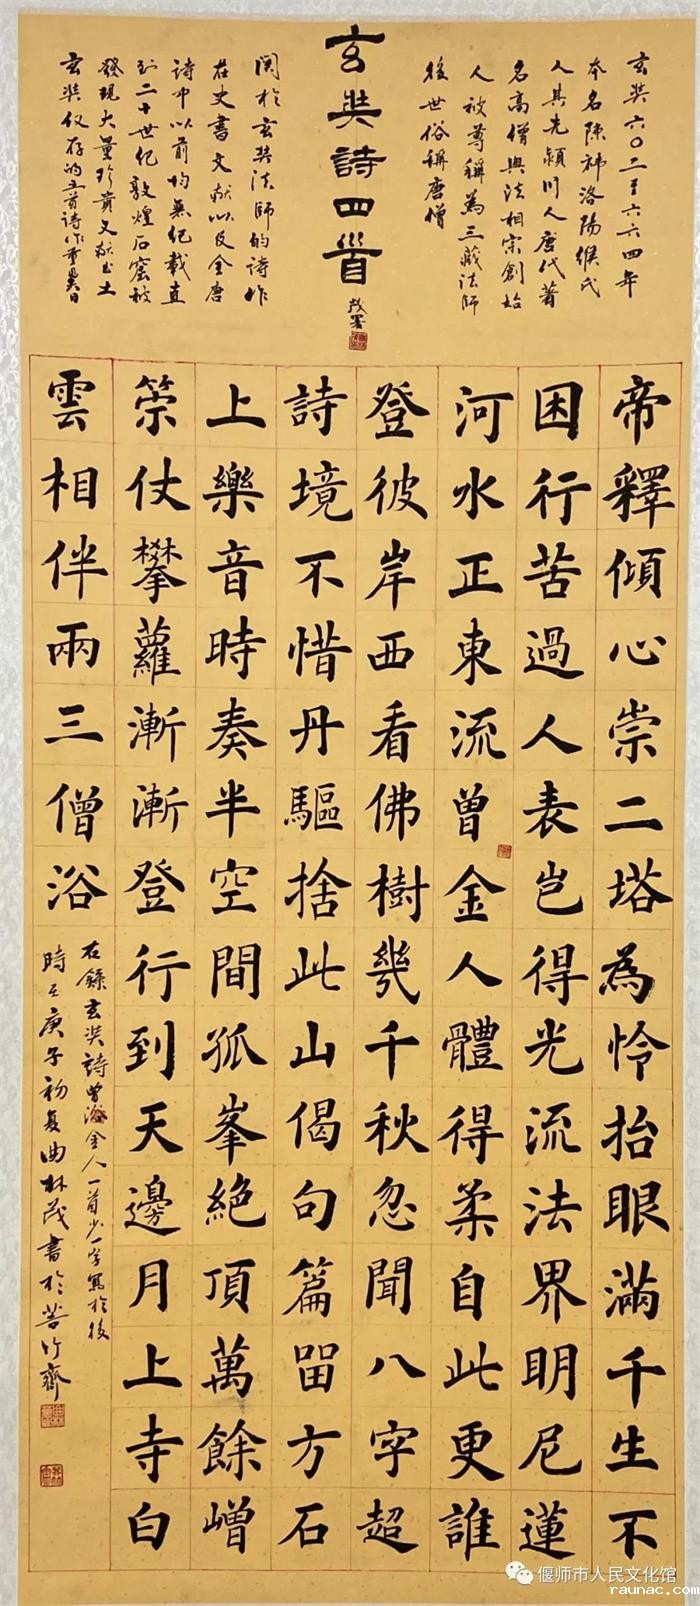 玄奘詩四首
茂署
玄奘六〇二至六六四年
本名陳禕洛陽緱氏
人其先潁川人唐代著
名高僧與法相宗創始
人被尊稱為三藏法師
後世俗稱唐僧
関於玄奘法師的詩作
在史書文献以及全唐
詩中以前均無紀載直
到二十世纪敦煌石窟被
發現大量珍貴文献出土
玄奘仅存的五首詩作重見天日
帝釋傾心崇二塔為怜抬眼滿千生不
困行苦過人表豈得光流法界明尼蓮
河水正東流曾金人體得柔自此更誰
登彼岸西看佛樹幾千秋忽聞八字超
詩境不惜丹驅捨此山偈句篇留方石
上樂音時奏半空間孤峯絶頂萬餘嶒
策仗攀蘿漸漸登行到天邊月上寺白
雲相伴兩三僧浴
右錄玄奘詩曾浴金人一首少一字寫於後
時在庚子初夏曲林茂書於菩竹齋
偃师市人民文化馆
raunac.com